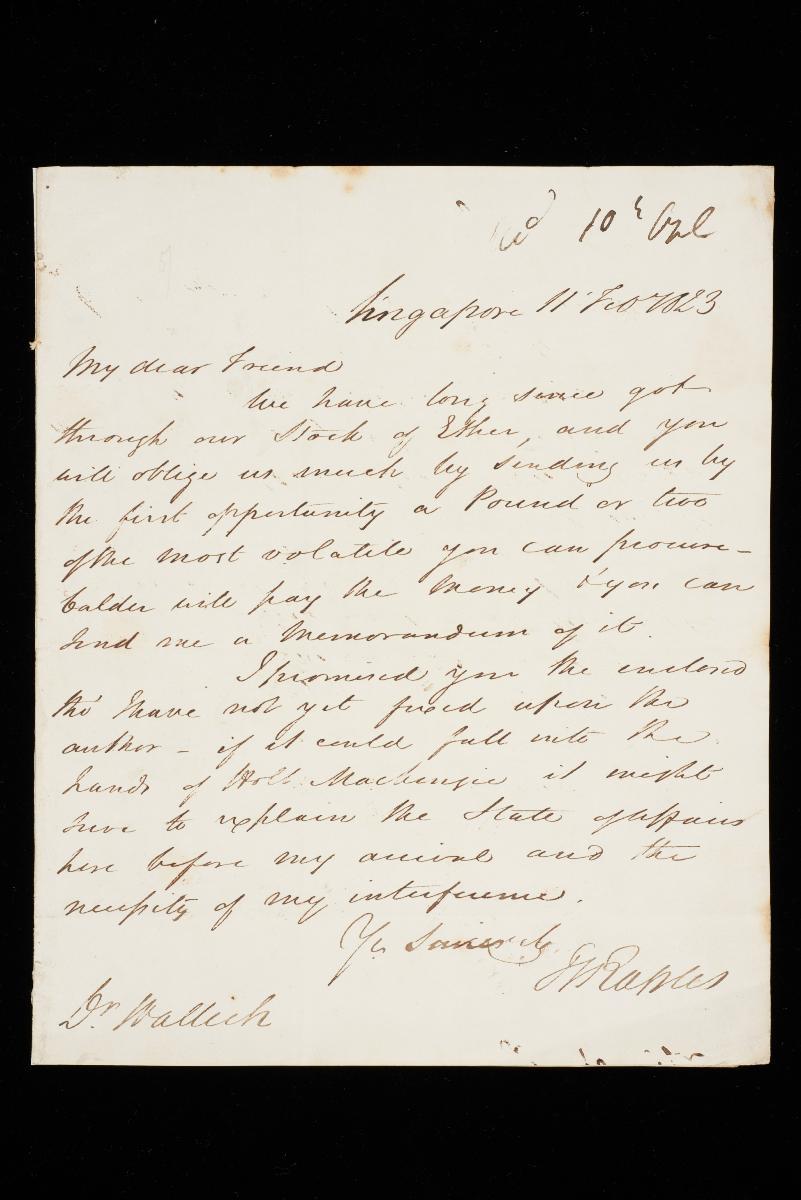 Recd 10th Apl
Singapore 11 Feb 1823
My dear Friend
We have long since got
through our Stock of Ether, and you
will oblige us much by sending us by
the first opportunity a Pound or two
of the most volatile you can procure -
Calder will pay the money & you can
send me a Memorandum of it.
I promised you the enclosed
tho' I have not yet fixed upon the
author - if it could fall into the
hands of Holt Mackenzie it might
serve to explain the State of Affairs
here before my arrival and the
necessity of my interference.
Yrs Sincerely
TSRaffles
Dr. Wallich